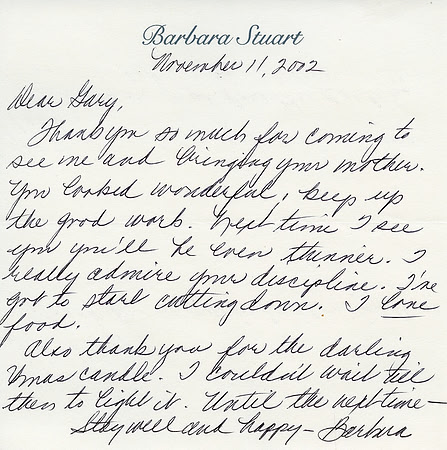 Barbara Stuart
November 11, 2002
Dear Gary,
Thank you so much for coming to
see me and bringing your mother.
You looked wonderful, keep up
the good work. Next time I see
you you'll be even thinner. I
really admire your discipline. I've
got to start cutting down. I love
food.
Also thank you for the darling
Xmas candle. I couldn't wait til
then to light it. Until the next time—
Stay well and happy— Barbara